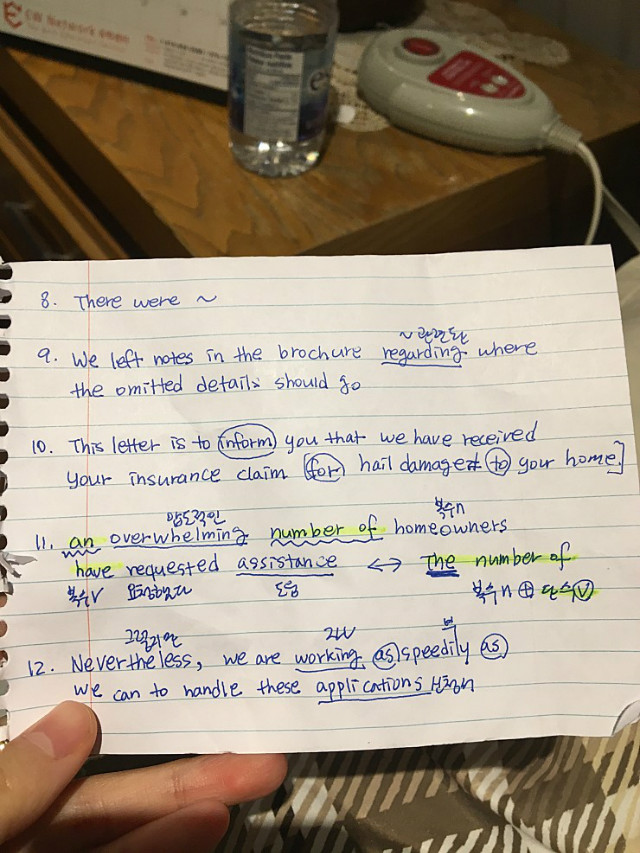 CW Network
8. There were ~
~ 관련된
9. We left notes in the brochure regarding where
the omitted details should go
10. This letter is to inform you that we have received
your insurance claim [for hail damage to your home.]
압도적인 복수n
11. an overwhelming number of homeowners
have requested assistance ↔ The number of
복수V 요청했었다 도움 복수n + 단수V
그럼에도
12. Nevertheless, we are working as speedily as
we can to handle these applications 신청서